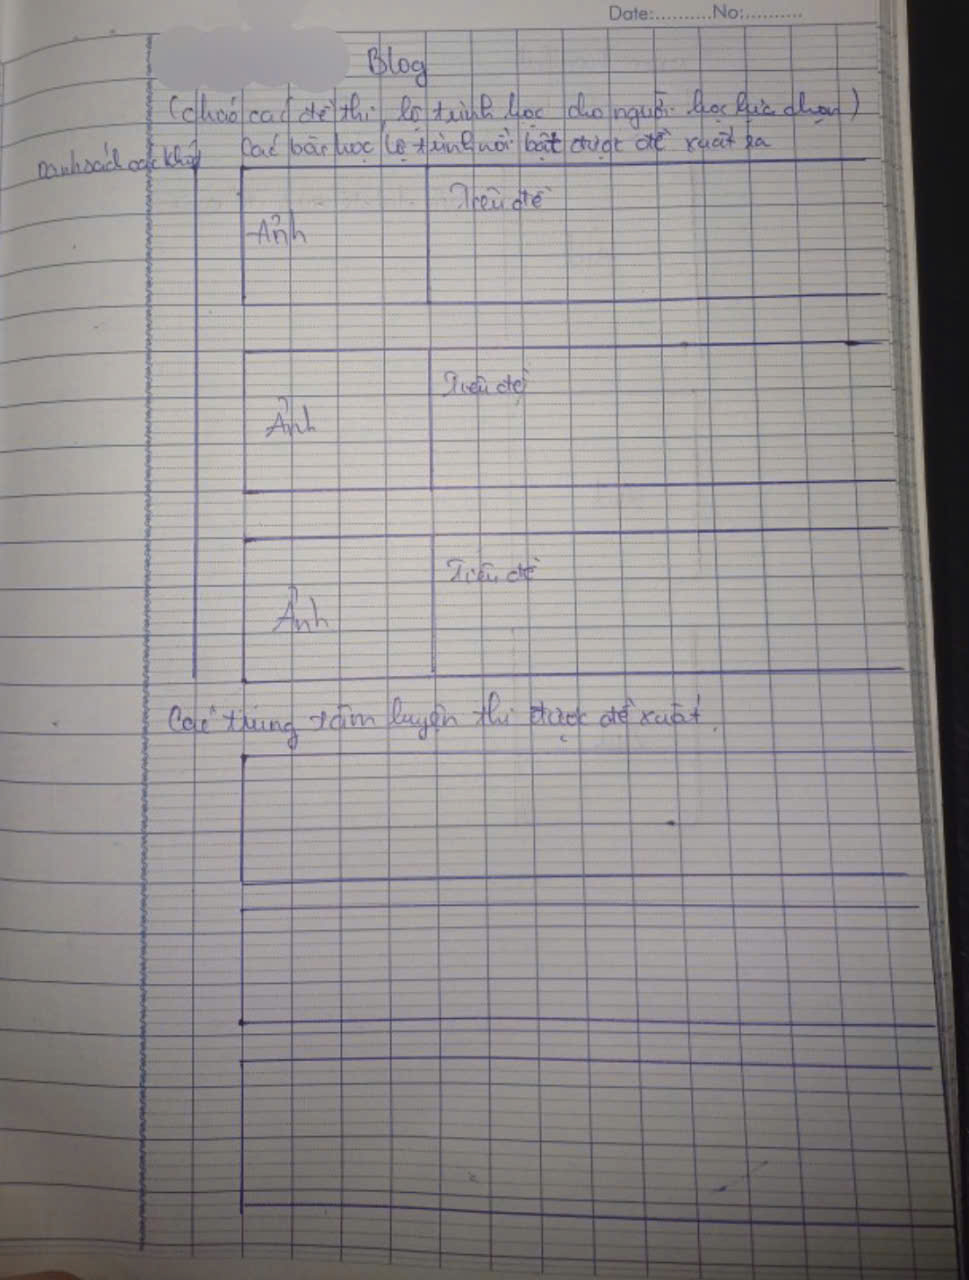 Date:...........No:...........
Blog
(chứa các đề thi, lộ trình học cho người học lựa chọn)
Các bài học lộ trình nổi bật được đề xuất ra
Danh sách các khối
Ảnh
Tiêu đề
Ảnh
Tiêu đề
Ảnh
Tiêu đề
Các trung tâm luyện thi được đề xuất.